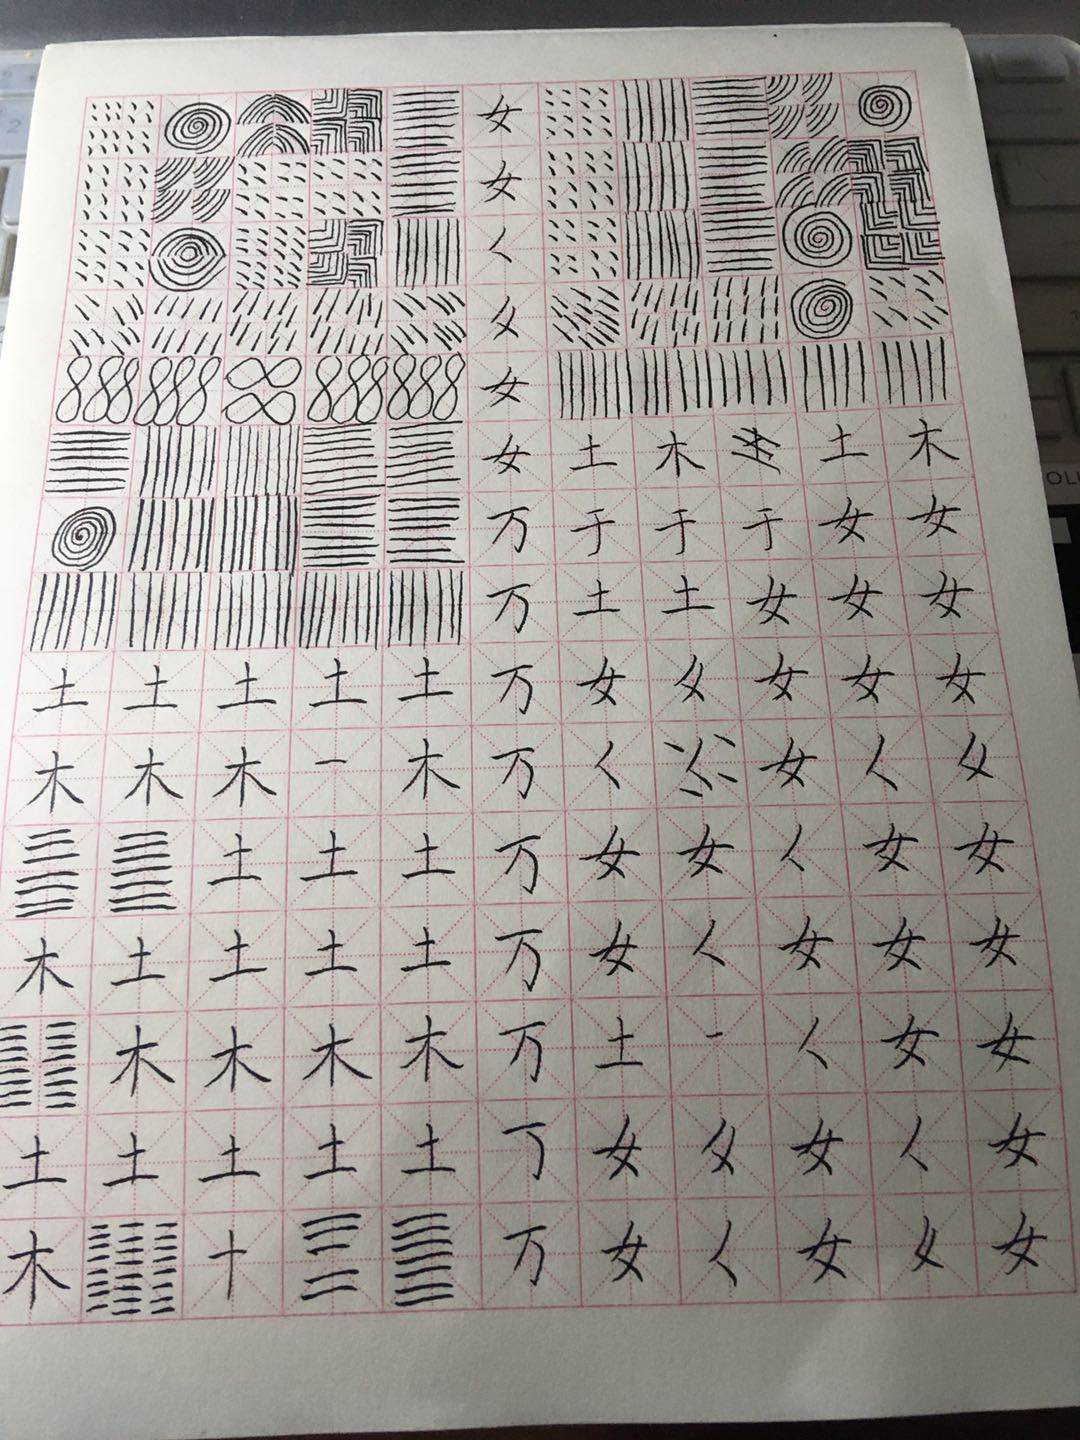 女
女
女
女 土 木 土 木
万 于 于 于 女 女
万 土 土 女 女 女
土 土 土 土 土 万 女 女 女 女
木 木 木 一 木 万 女
土 土 土 万 女 女 女 女
木 土 土 土 土 万 女 女 女 女
木 木 木 木 万 土 一 女 女
土 土 土 土 土 女 女 女
木 十 万 女 女 女